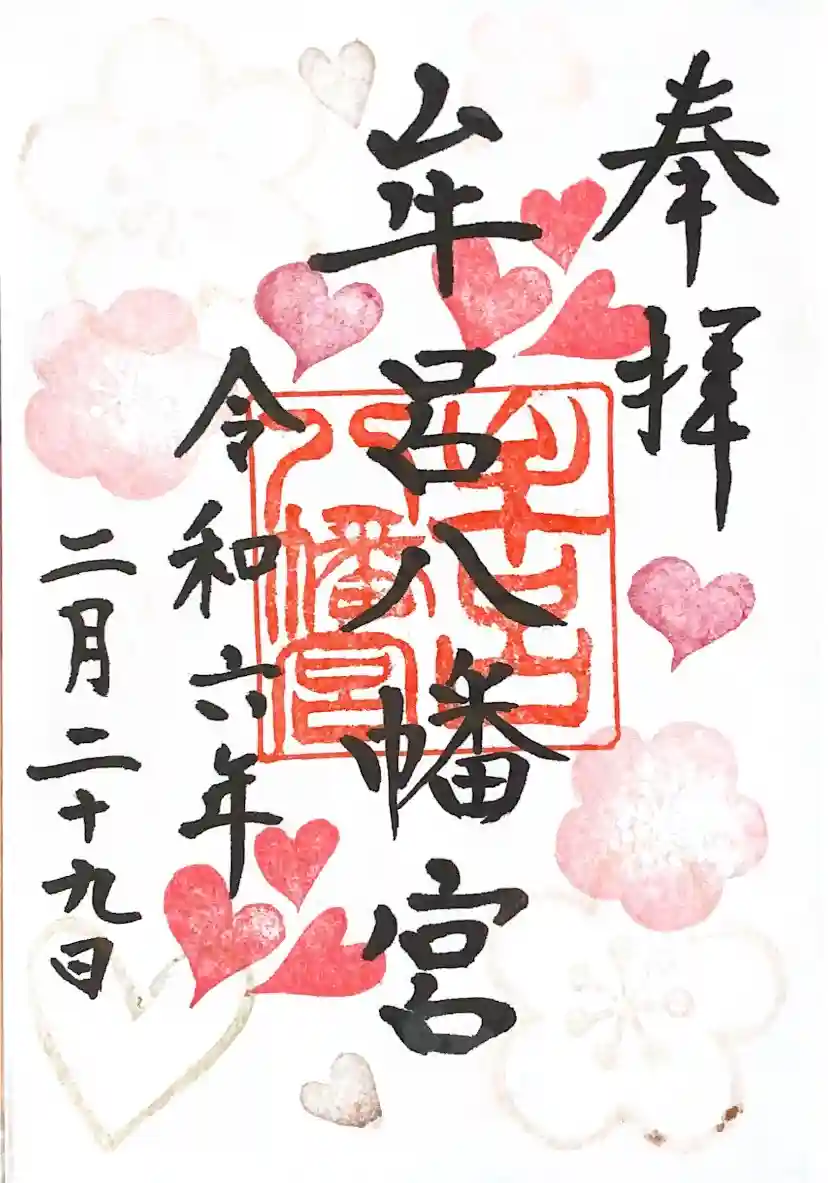 奉拝
牟呂八幡宮
牟呂八幡宮
令和六年
二月二十九日